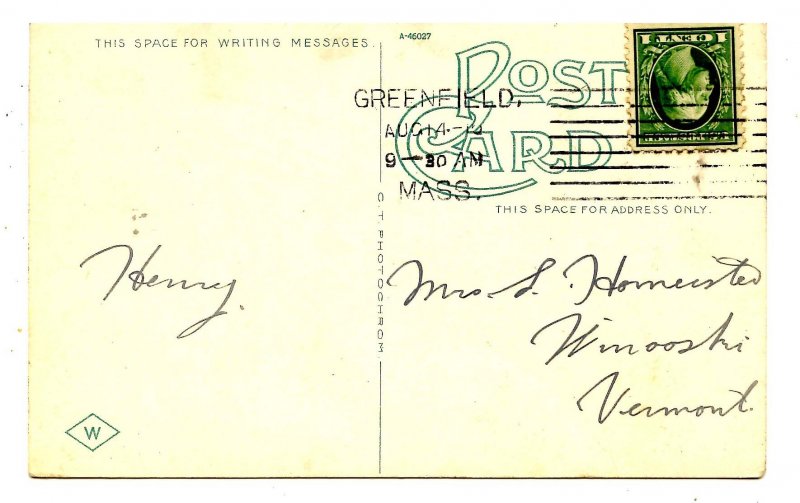 THIS SPACE FOR WRITING MESSAGES.
A-46027
POST CARD
GREENFIELD,
AUG 14-
9-30 AM
MASS.
THIS SPACE FOR ADDRESS ONLY.
C T PHOTOCHROM
Henry.
Mrs. L.
Winooski
Vermont.
W